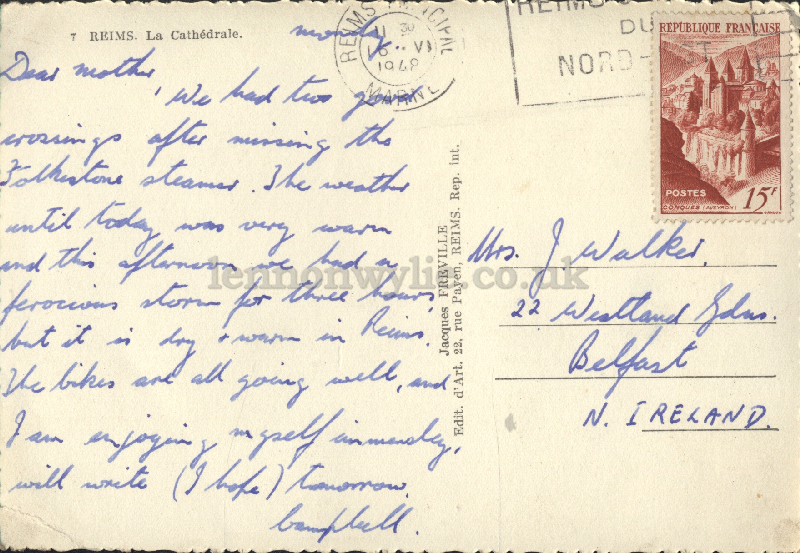 7 REIMS. La Cathédrale.
monday
Dear mother,
We had two good
crossings after missing the
Folkestone steamer. The weather
until today was very warm
and this afternoon we had a
ferocious storm for three hours,
but it is dry + warm in Reims.
The bikes are all going well, and
I am enjoying myself immensley,
will write (I hope) tomorrow.
Campbell.
REIMS PRINCIPAL
16 VI
1948
MARNE
REIMS
DU
NORD-EST
RÉPUBLIQUE FRANÇAISE
POSTES
15F
CONQUES (AVEYRON)
Jacques FREVILLE
Edit. d'Art. 22, rue Payen, REIMS. Rep. int.
Mrs. J Walker.
22 Westland Gdns.
Belfast
N. IRELAND.
lennonwylie.co.uk